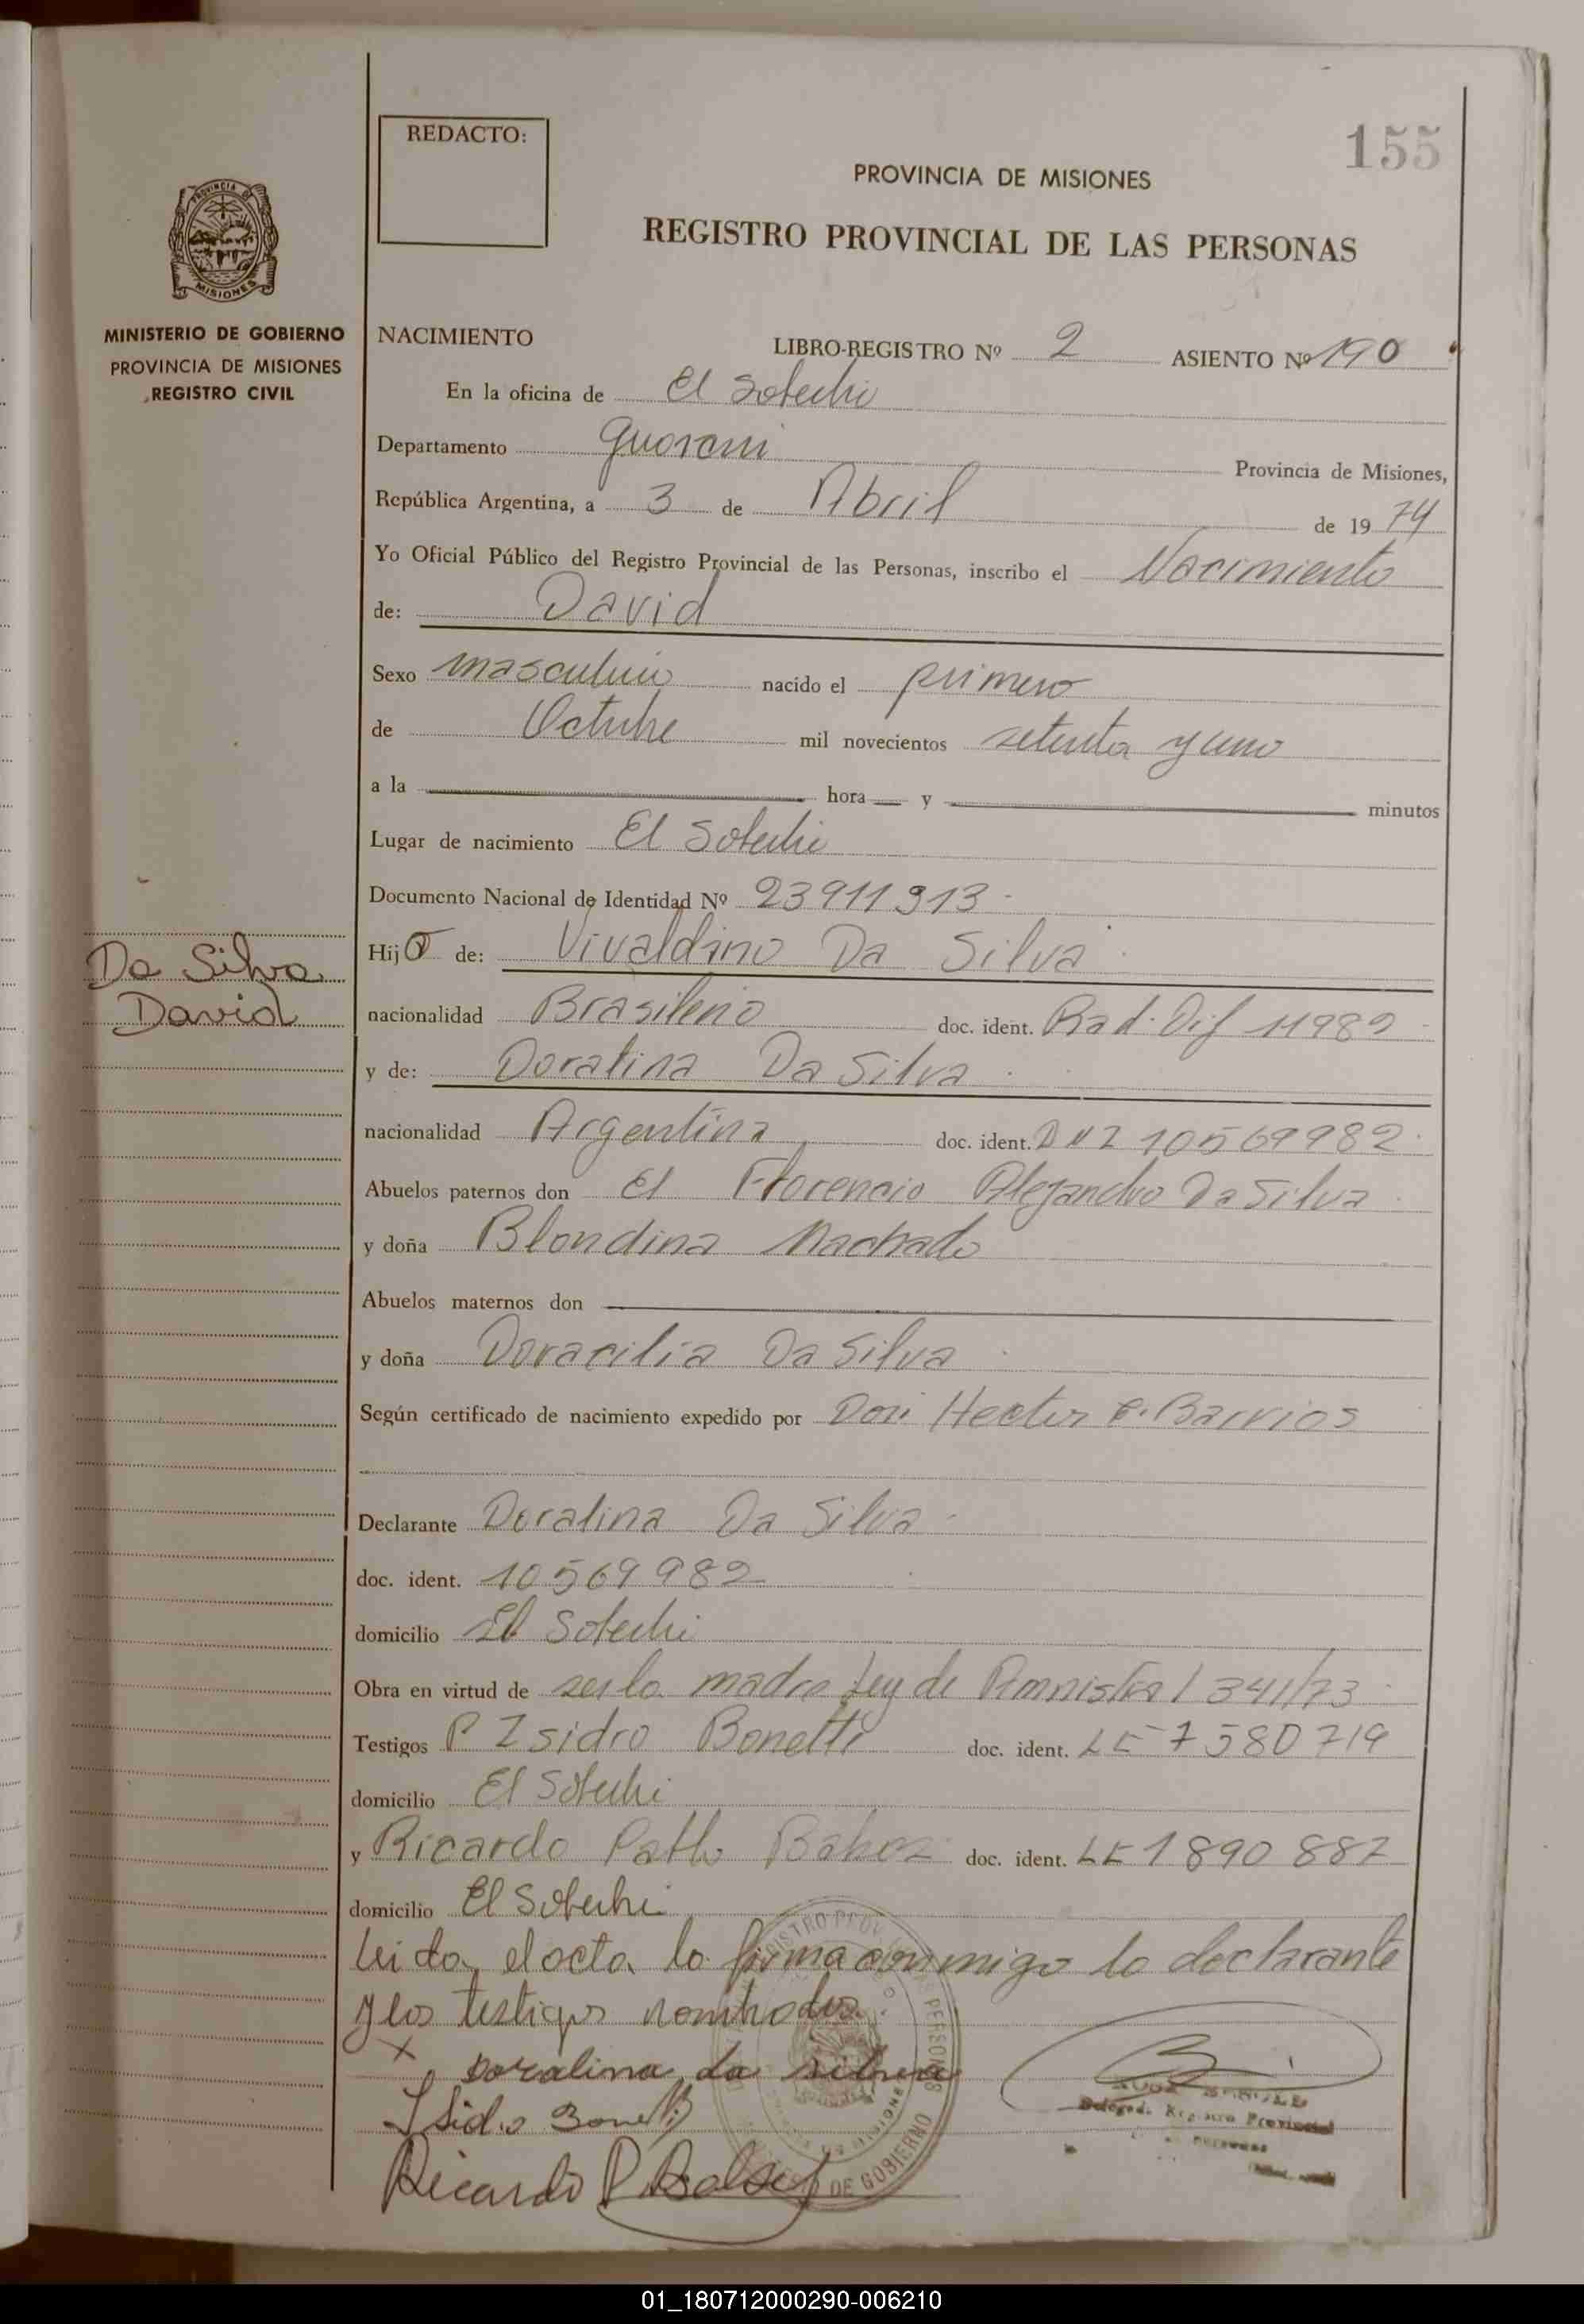 155
REDACTO:
PROVINCIA DE MISIONES
REGISTRO PROVINCIAL DE LAS PERSONAS
PROVINCIA DE
MISIONES
MINISTERIO DE GOBIERNO
PROVINCIA DE MISIONES
REGISTRO CIVIL
NACIMIENTO LIBRO-REGISTRO Nº 2 ASIENTO Nº 190
En la oficina de El Soberbio
Departamento Guarani Provincia de Misiones,
República Argentina, a 3 de Abril de 1974
Yo Oficial Público del Registro Provincial de las Personas, inscribo el Nacimiento
de: David
Sexo masculino nacido el primero
de Octubre mil novecientos setenta y uno
a la hora y minutos
Lugar de nacimiento El Soberbio
Documento Nacional de Identidad Nº 23911313
Da Silva
David
Hijo de: Vivaldino Da Silva
nacionalidad Brasileño doc. ident. Rad. Dif 11989
y de: Doralina Da Silva
nacionalidad Argentina doc. ident. DNI 10569982
Abuelos paternos don El Florencio Alejandro Da Silva
y doña Blondina Machado
Abuelos maternos don
y doña Doracilia Da Silva
Según certificado de nacimiento expedido por Don Hector E. Barrios
Declarante Doralina Da Silva
doc. ident. 10569982
domicilio El Soberbio
Obra en virtud de ser la madre Ley de Amnistia 1341/73
Testigos P Isidro Bonetti doc. ident. LE 7580719
domicilio El Soberbio
y Ricardo Pablo doc. ident. LE 1890887
domicilio El Soberbio
Leida el acta la firma conmigo la declarante
y los testigos nombrados.
x doralina da silva
Isidro Bonetti
Ricardo P.
Delegado Registro Provincial
DE GOBIERNO
01_180712000290-006210